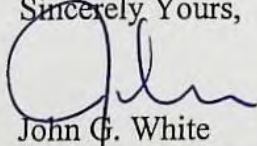 Sincerely Yours,
John
John G. White